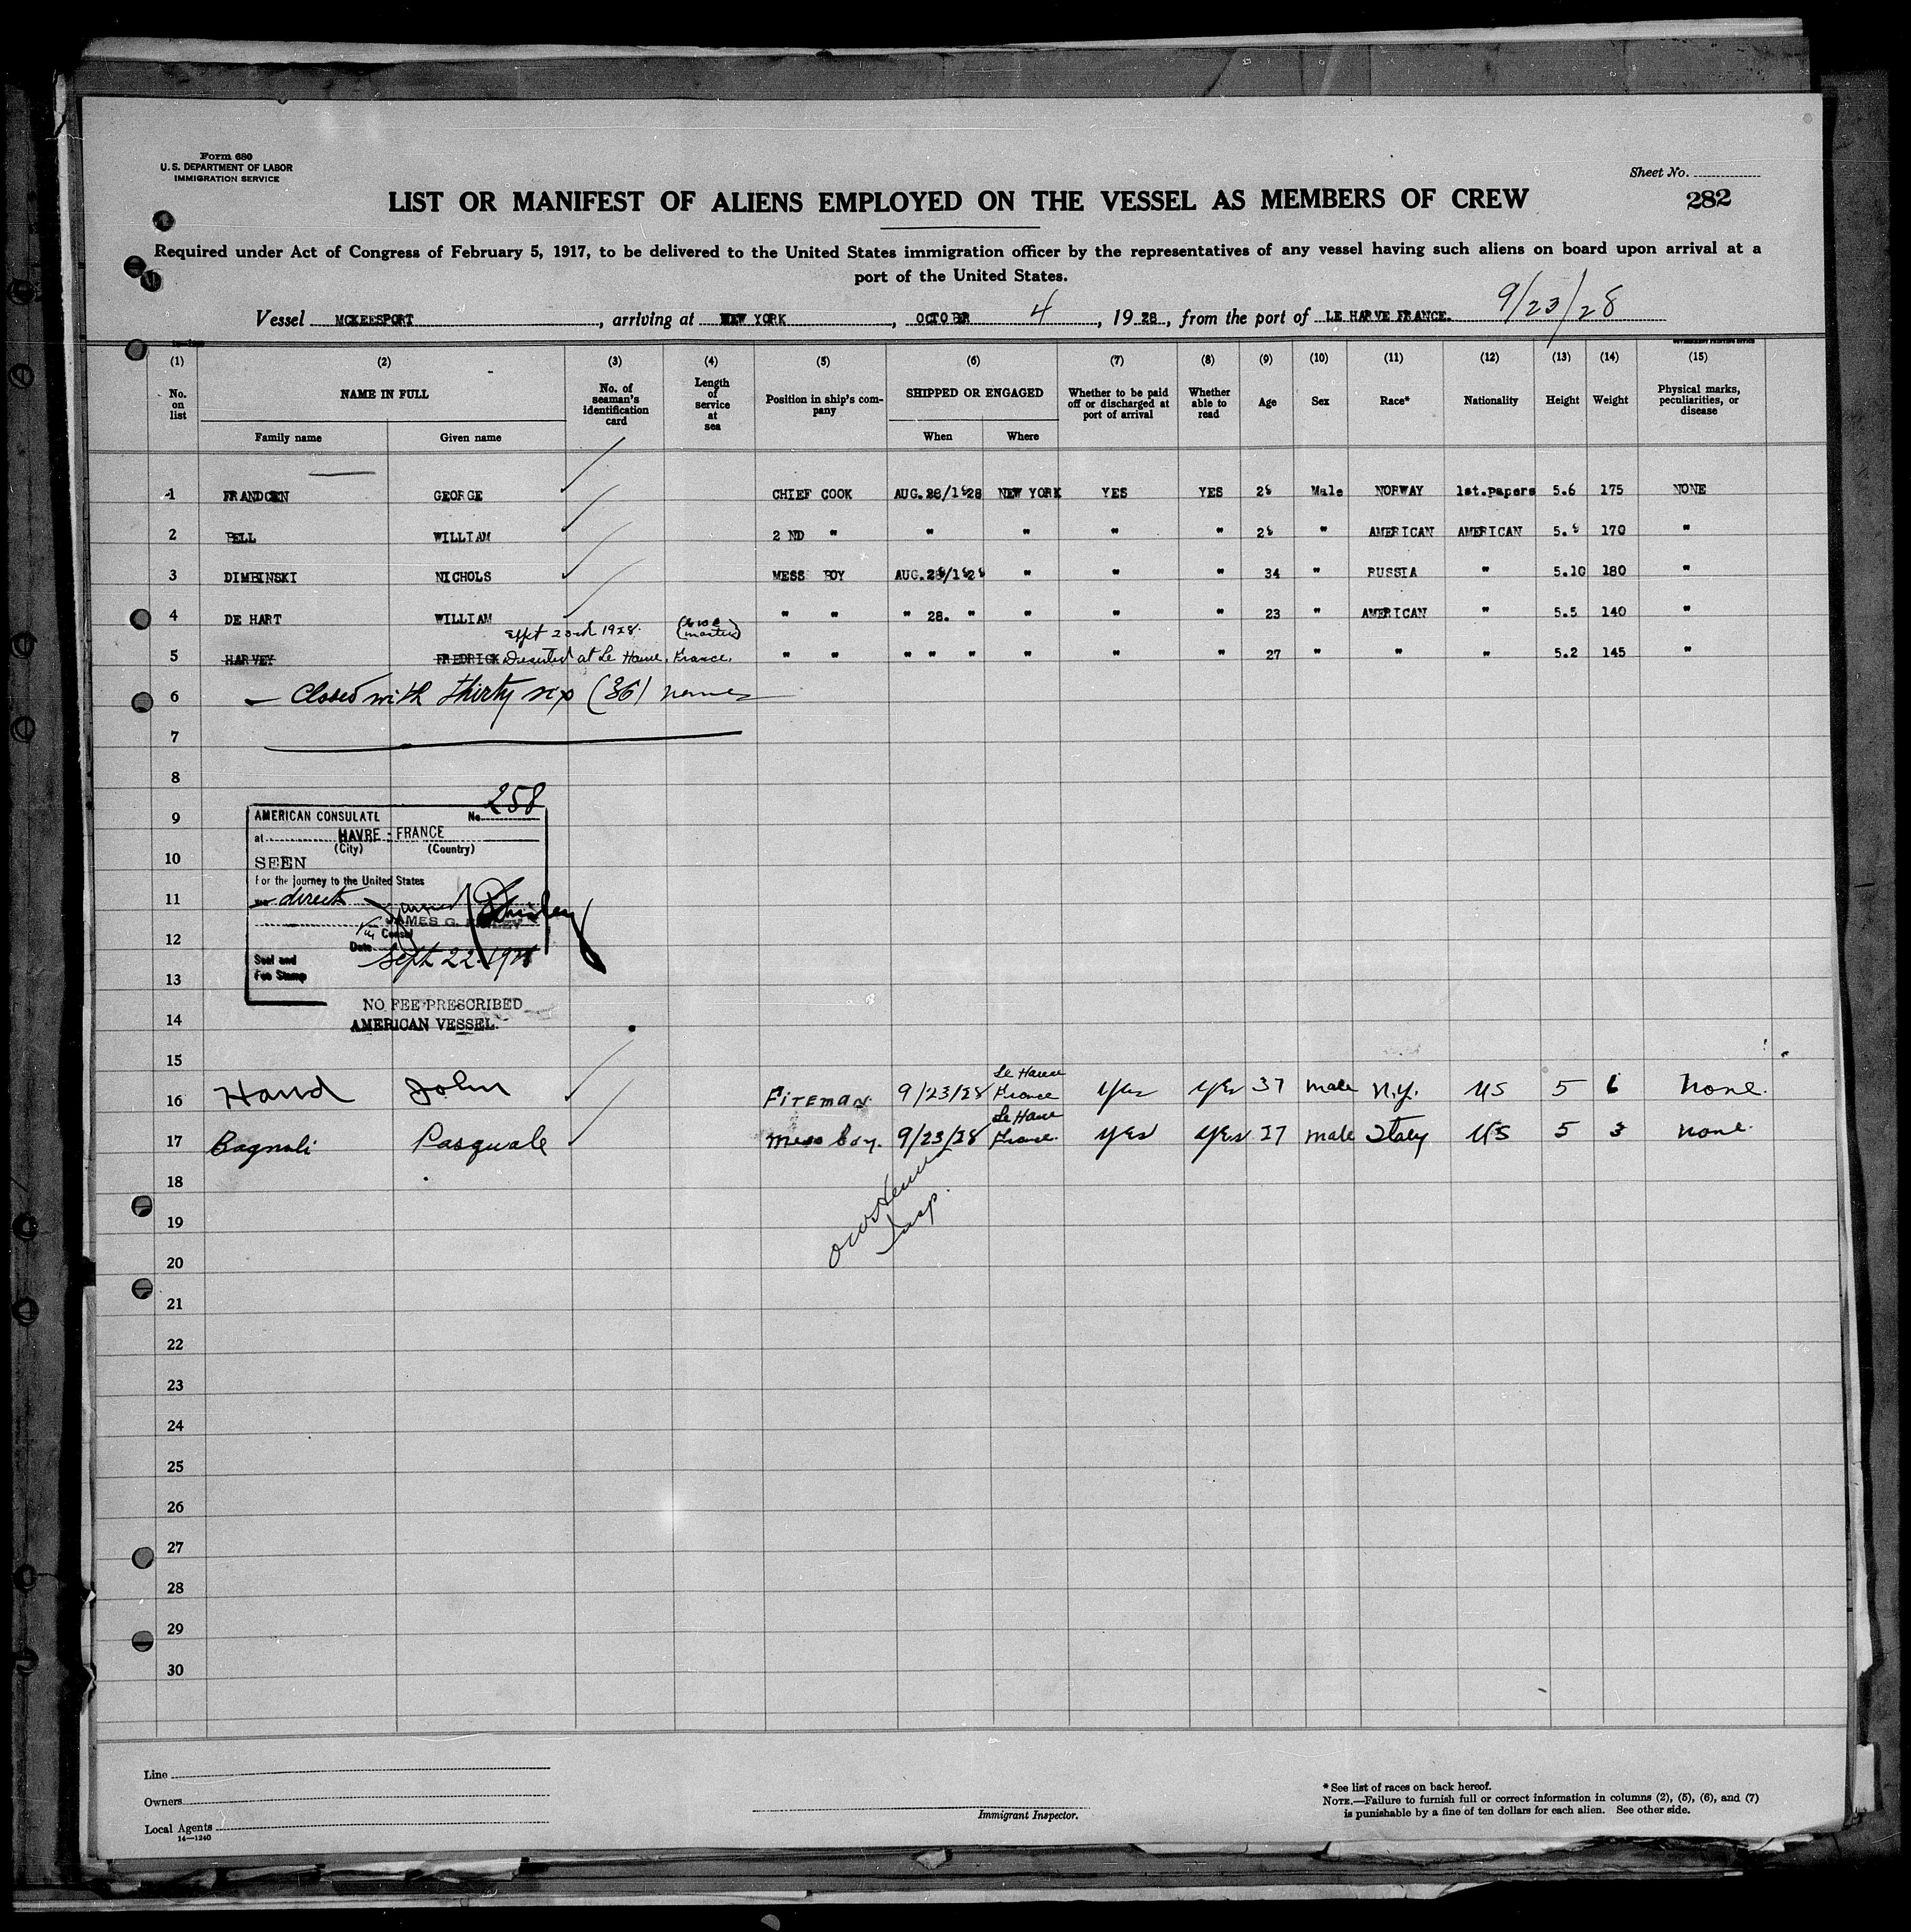 Form 680
U. S. DEPARTMENT OF LABOR
IMMIGRATION SERVICE
Sheet No.
282
LIST OR MANIFEST OF ALIENS EMPLOYED ON THE VESSEL AS MEMBERS OF CREW
Required under Act of Congress of February 5, 1917, to be delivered to the United States immigration officer by the representatives of any vessel having such aliens on board upon arrival at a
port of the United States.
Vessel MCKEESPORT, arriving at NEW YORK, OCTOBR 4, 1928, from the port of LE HARVE FRANCE. 9/23/28
(1) (2) (3) (4) (5) (6) (7) (8) (9) (10) (11) (12) (13) (14) (15)
No. on list NAME IN FULL No. of seaman's identification card Length of service at sea Position in ship's company SHIPPED OR ENGAGED Whether to be paid off or discharged at port of arrival Whether able to read Age Sex Race* Nationality Height Weight Physical marks, peculiarities, or disease
Family name Given name When Where
1 FRANDCEN GEORGE CHIEF COOK AUG.28/1928 NEW YORK YES YES 29 Male NORWAY 1st.Papers 5.6 175 NONE
2 BELL WILLIAM 2 ND " " " " " 29 " AMERICAN AMERICAN 5.9 170 "
3 DIMBINSKI NICHOLS MESS BOY AUG.29/1929 " " " 34 " RUSSIA " 5.10 180 "
4 DE HART WILLIAM " " " 28. " " " " 23 " AMERICAN " 5.5 140 "
Sept 23rd 1928.
5 HARVEY FREDRICK Deserted at Le Havre, France. " " " " " " " 27 " " " 5.2 145 "
6 Closed with thirty six (36) names
7
8
258
9 AMERICAN CONSULATE No.
at HAVRE - FRANCE
(City) (Country)
10 SEEN
For the journey to the United States
11 direct
JAMES G.
12 Consul
Date Sept. 22. 1928
Seal and
Fee Stamp
13
NO FEE PRESCRIBED
14 AMERICAN VESSEL.
15
Le Havre
16 Hand John Fireman. 9/23/28 France yes yes 37 male N.Y. US 5 6 None.
Le Havre
17 Bagnoli Pasquale Mess boy. 9/23/28 France. yes yes 27 male Italy US 5 3 none.
18
Insp.
19
20
21
22
23
24
25
26
27
28
29
30
Line
Owners
Local Agents
14—1240
Immigrant Inspector.
* See list of races on back hereof.
NOTE.—Failure to furnish full or correct information in columns (2), (5), (6), and (7)
is punishable by a fine of ten dollars for each alien. See other side.